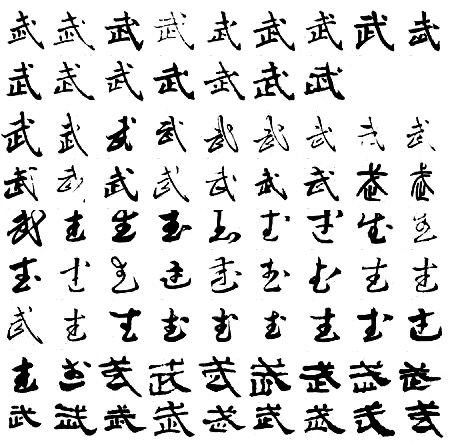 武武武武武武武武武
武武武武武武武
武武武武武武武武武
武武武武武武武武武
武武武武武武武武武
武武武武武武武武武
武武武武武武武武武
武武武武武武武武武
武武武武武武武武武